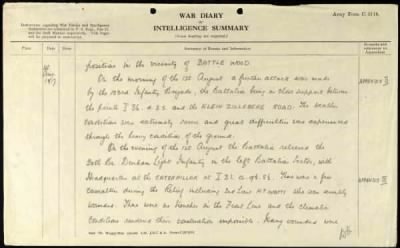 WAR DIARY
or
INTELLIGENCE SUMMARY
(Erase heading not required.)
Army Form C. 2118.
Instructions regarding War Diaries and Intelligence
Summaries are contained in F. S. Regs., Part II.
and the Staff Manual respectively. Title Pages
will be prepared in manuscript.
Place
Date
Hour
Summary of Events and Information
Remarks and
references to
Appendices
position in the vicinity of BATTLE WOOD
1917
On the morning of the 1st August a further attack was made
by the Infantry Brigade, the Battalion being in close support between
the points I 36. and the KLEIN ZILLEBEKE ROAD. The weather
conditions were extremely severe and great difficulties was experienced
through the heavy condition of the ground.
On the evening of the 1st August the Battalion relieved the
20th Bn Durham Light Infantry in the left Battalion Sector, with
Headquarters at the CATERPILLAR at I
casualties during the Relief including 2nd Lieut who was
wounded. There were no trenches in the Front Line and the climatic
conditions rendered their construction impossible. Many wounded were
APPENDIX
APPENDIX